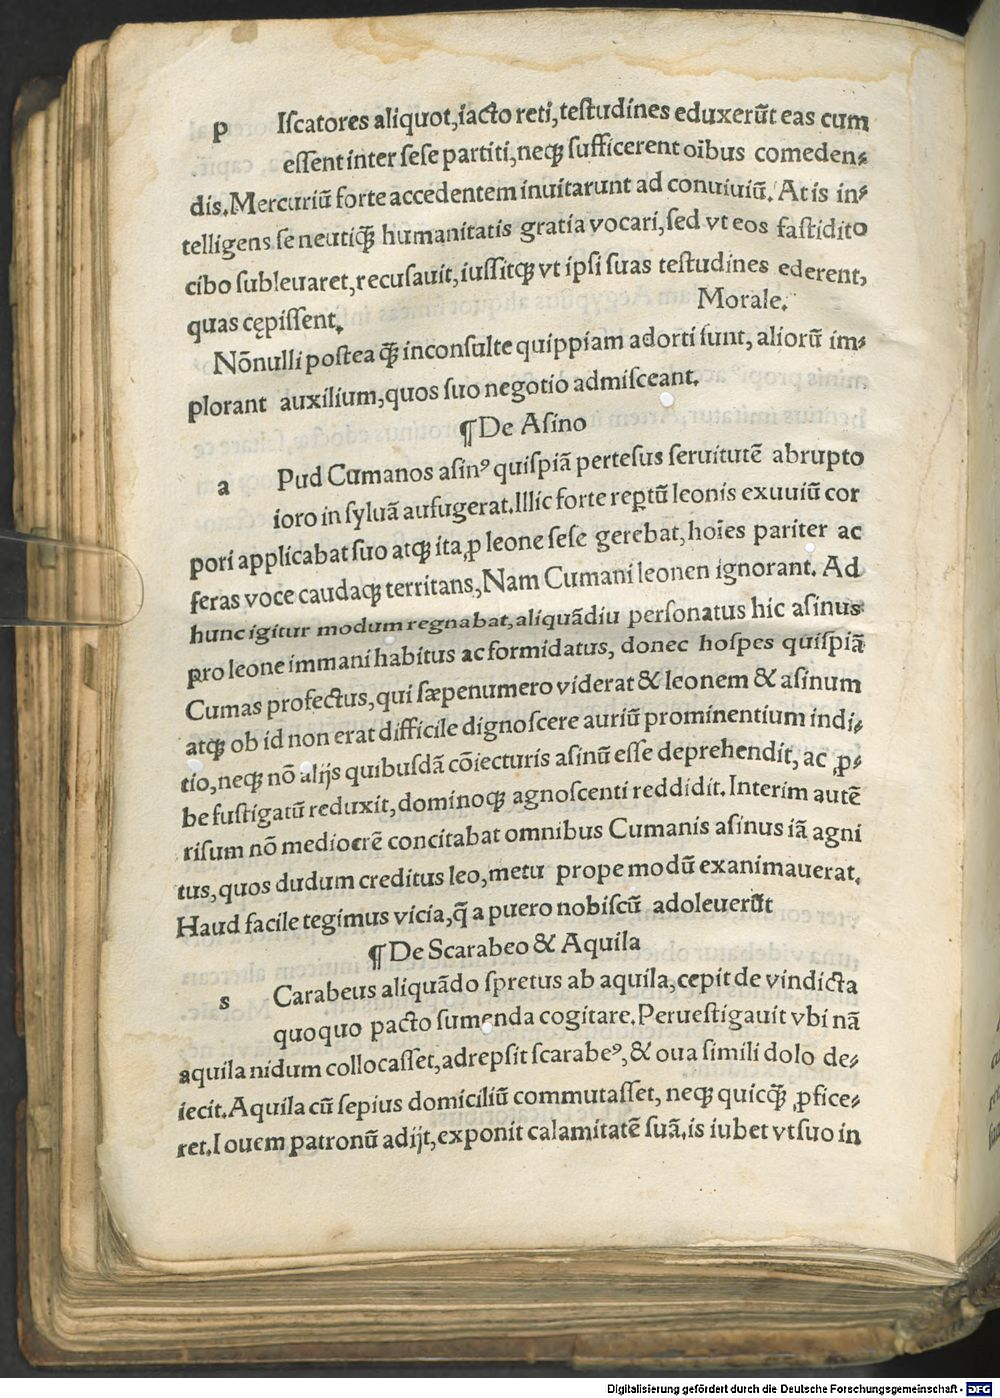 p Iſcatores aliquot,iacto reti,teſtudines eduxerūt eas cum
eſſent inter ſeſe partiti,neqꝫ ſufficerent oībus comeden⸗
dis.Mercuriū forte accedentem inuitarunt ad conuiuiū. At is in⸗
telligens ſe neutiqꝫ̄ humanitatis gratia vocari,ſed vt eos faſtidito
cibo ſubleuaret,recuſauit,iuſſitqꝫ vt ipſi ſuas teſtudines ederent,
quas cępiſſent. Morale.
Nōnulli poſtea qꝫ̄ inconſulte quippiam adorti ſunt, aliorū im⸗
plorant auxilium,quos ſuo negotio admiſceant.
¶De Aſino
a Pud Cumanos aſinꝰ quiſpiā pertesus ſeruitutē abrupto
ioro in ſyluā aufugerat.Illic forte reꝑtū leonis exuuiū cor
pori applicabat ſuo atqꝫ ita ꝓ leone ſeſe gerebat,hoīes pariter ac
feras voce caudaqꝫ territans,Nam Cumani leonen ignorant. Ad
hunc igitur modum regnabat,aliquādiu perſonatus hic aſinus
pro leone immani habitus ac formidatus, donec hoſpes quiſpiā
Cumas profectus,qui ſæpenumero viderat & leonem & aſinum
atqꝫ ob id non erat difficile dignoſcere auriū prominentium indi⸗
tio,neqꝫ nō alijs quibuſdā cōiecturis aſinū eſſe deprehendit, ac ꝓ⸗
be fuſtigatū reduxit,dominoqꝫ agnoſcenti reddidit.Interim autē
riſum nō mediocrē concitabat omnibus Cumanis aſinus iā agni
tus,quos dudum creditus leo,metu prope modū exanimauerat.
Haud facile tegimus vicia,q̄ a puero nobiſcū adoleuerūt
¶De Scarabeo & Aquila
s Carabeus aliquādo ſpretus ab aquila,cepit de vindicta
quoquo pacto ſumenda cogitare.Perueſtigauit vbi nā
aquila nidum collocaſſet,adrepſit ſcarabeꝰ,& oua ſimili dolo de⸗
iecit.Aquila cū ſepius domiciliū commutaſſet, neqꝫ quicqꝫ̄ ꝓfice⸗
ret.Iouem patronū adijt,exponit calamitatē ſuā.is iubet vt ſuo in
Digitalisierung gefördert durch die Deutsche Forschungsgemeinschaft - DFG